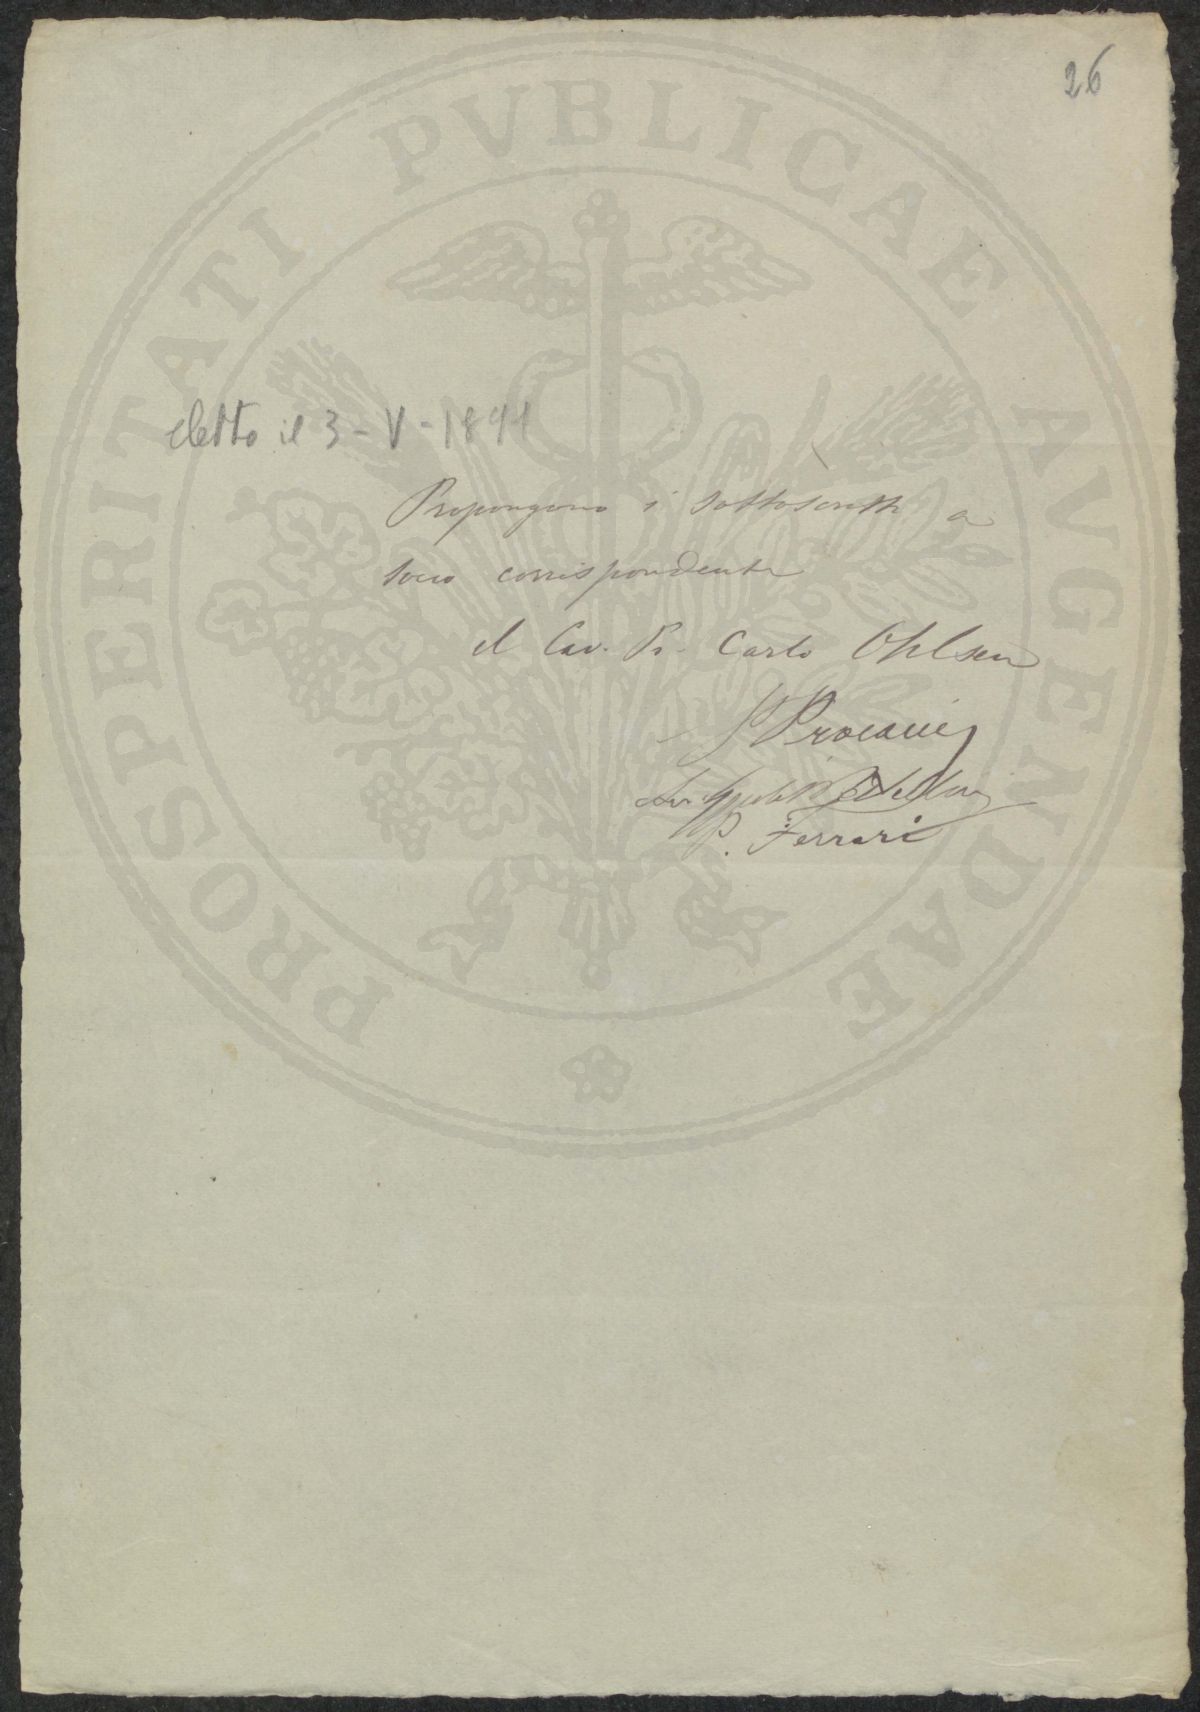 26
PROSPERITATI PVBLICAE AVGENDAE
eletto il 3-V-1891
Propongono i sottoscritti a
socio corrispondente
il Cav. Pr. Carlo Ohlsen
Ferrari